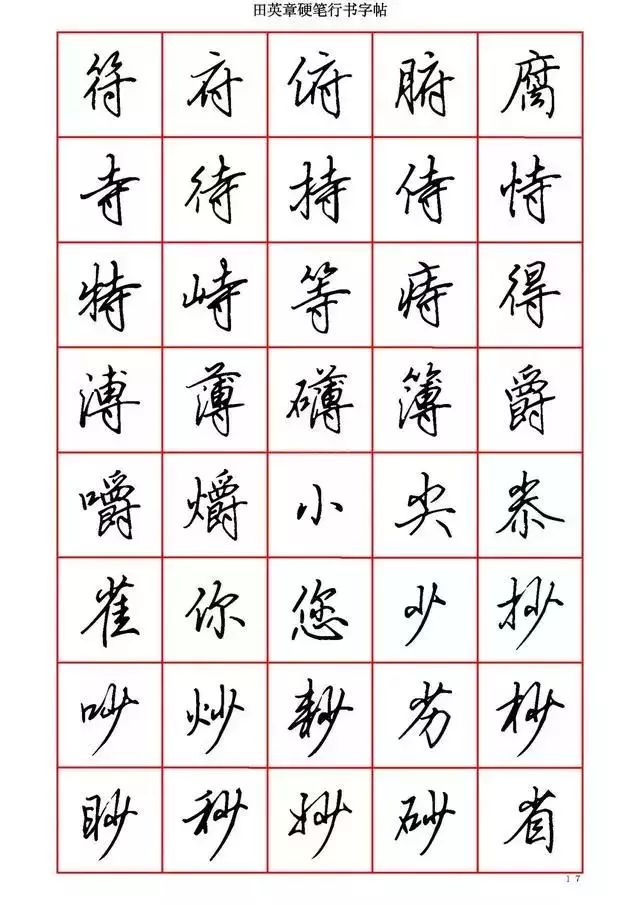 田英章硬笔行书字帖
符府俯腑腐
寺待持侍恃
特峙等痔得
溥薄礴簿爵
嚼爝小尖忝
雀你您少抄
吵炒耖劣杪
眇秒妙砂省
17